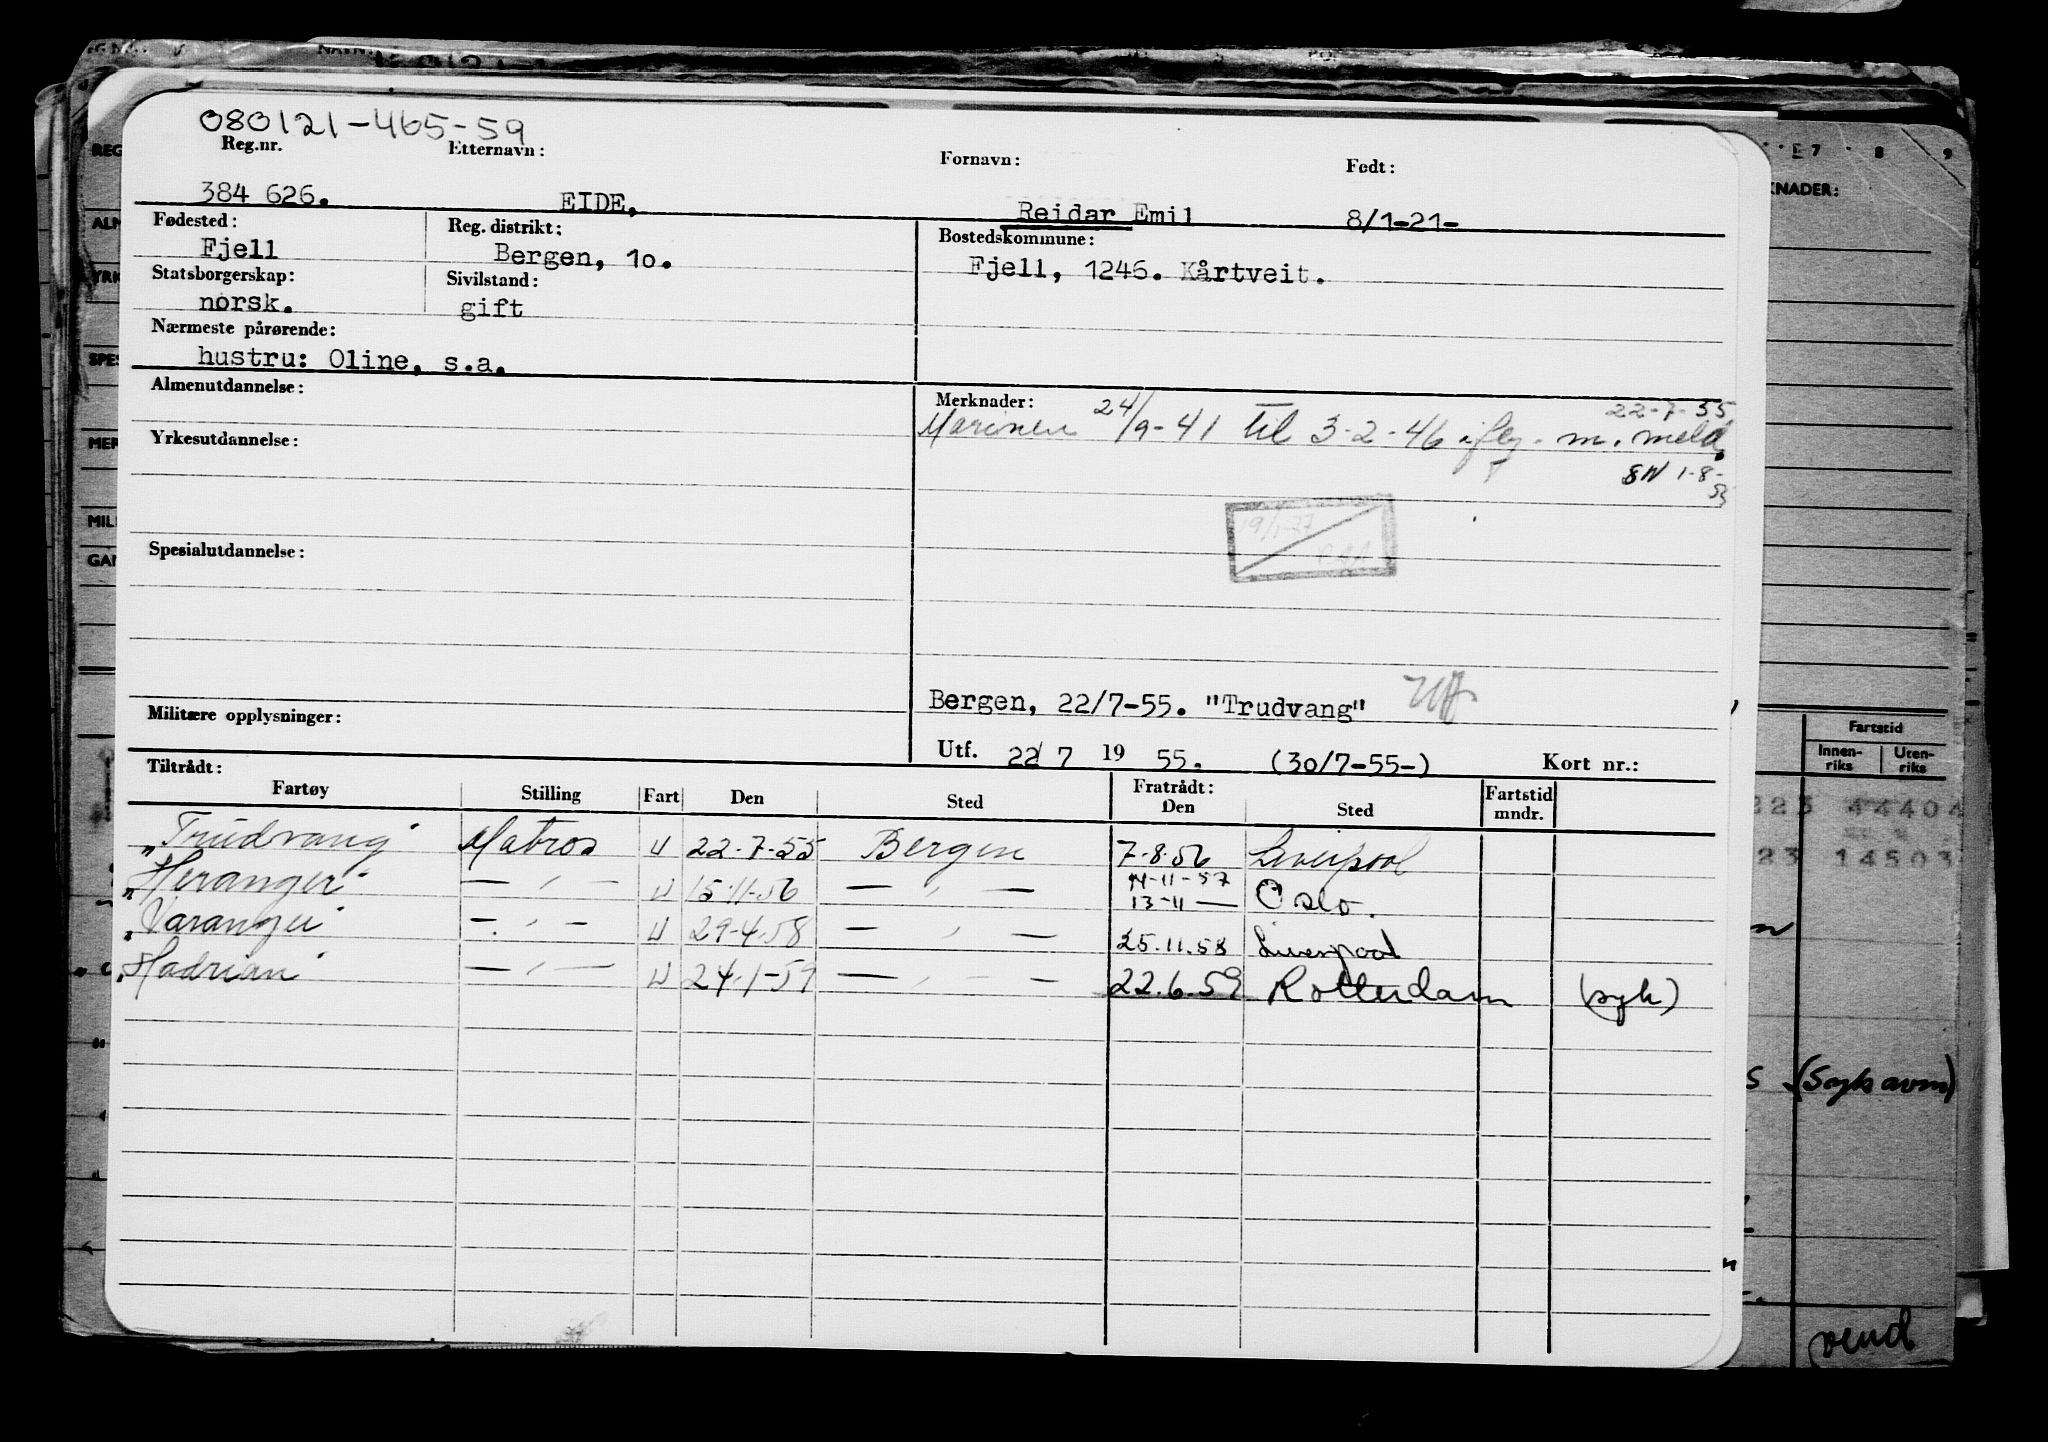 080121-465-59
Reg.nr. Etternavn: Fornavn: Født:
384 626. EIDE, Reidar Emil 8/1-21-
Fødested: Reg. distrikt: Bostedskommune:
Fjell Bergen, 10. Fjell, 1246. Kårtveit.
Statsborgerskap: Sivilstand:
norsk. gift
Nærmeste pårørende:
hustru: Oline, s.a.
Almenutdannelse: Merknader:
22-7-55
Marinen 24/9-41 til 3-2-46 ifлg. m. meld.
Yrkesutdannelse:
SN 1-8-55
19/1-77
Spesialutdannelse:
Bergen, 22/7-55. "Trudvang"
Militære opplysninger:
Utf. 22/7 19 55. (30/7-55-) Kort nr.:
Tiltrådt: Fratrådt:
Fartøy Stilling Fart Den Sted Den Sted Fartstid mndr.
"Trudvang" Matros U 22-7-55 Bergen 7-8-56 Liverpool
"Heranger" — " — U 15-11-56 — " — 14-11-57
13-11 — Oslo.
"Varanger" — " — U 29-4-58 — " — 25.11.58 Liverpool
"Hadrian" — " — U 24-1-59 — " — 22.6.59 Rotterdam (syk)
E7 8 9
KNADER:
Fartstid
Innen-riks Uten-riks
44404
14503
(Syk avm)
vend